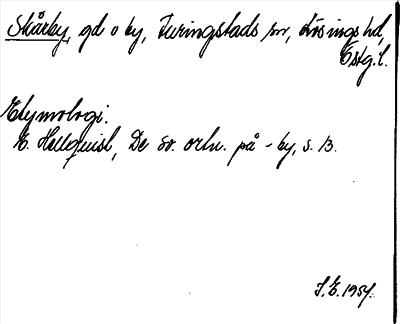 Skårby, gd o by, Furingstads sn, Lösings hd,
Östg. l.
Etymologi.
E. Hellquist, De sv. ortn. på -by, s. 13.
I. E. 1954.